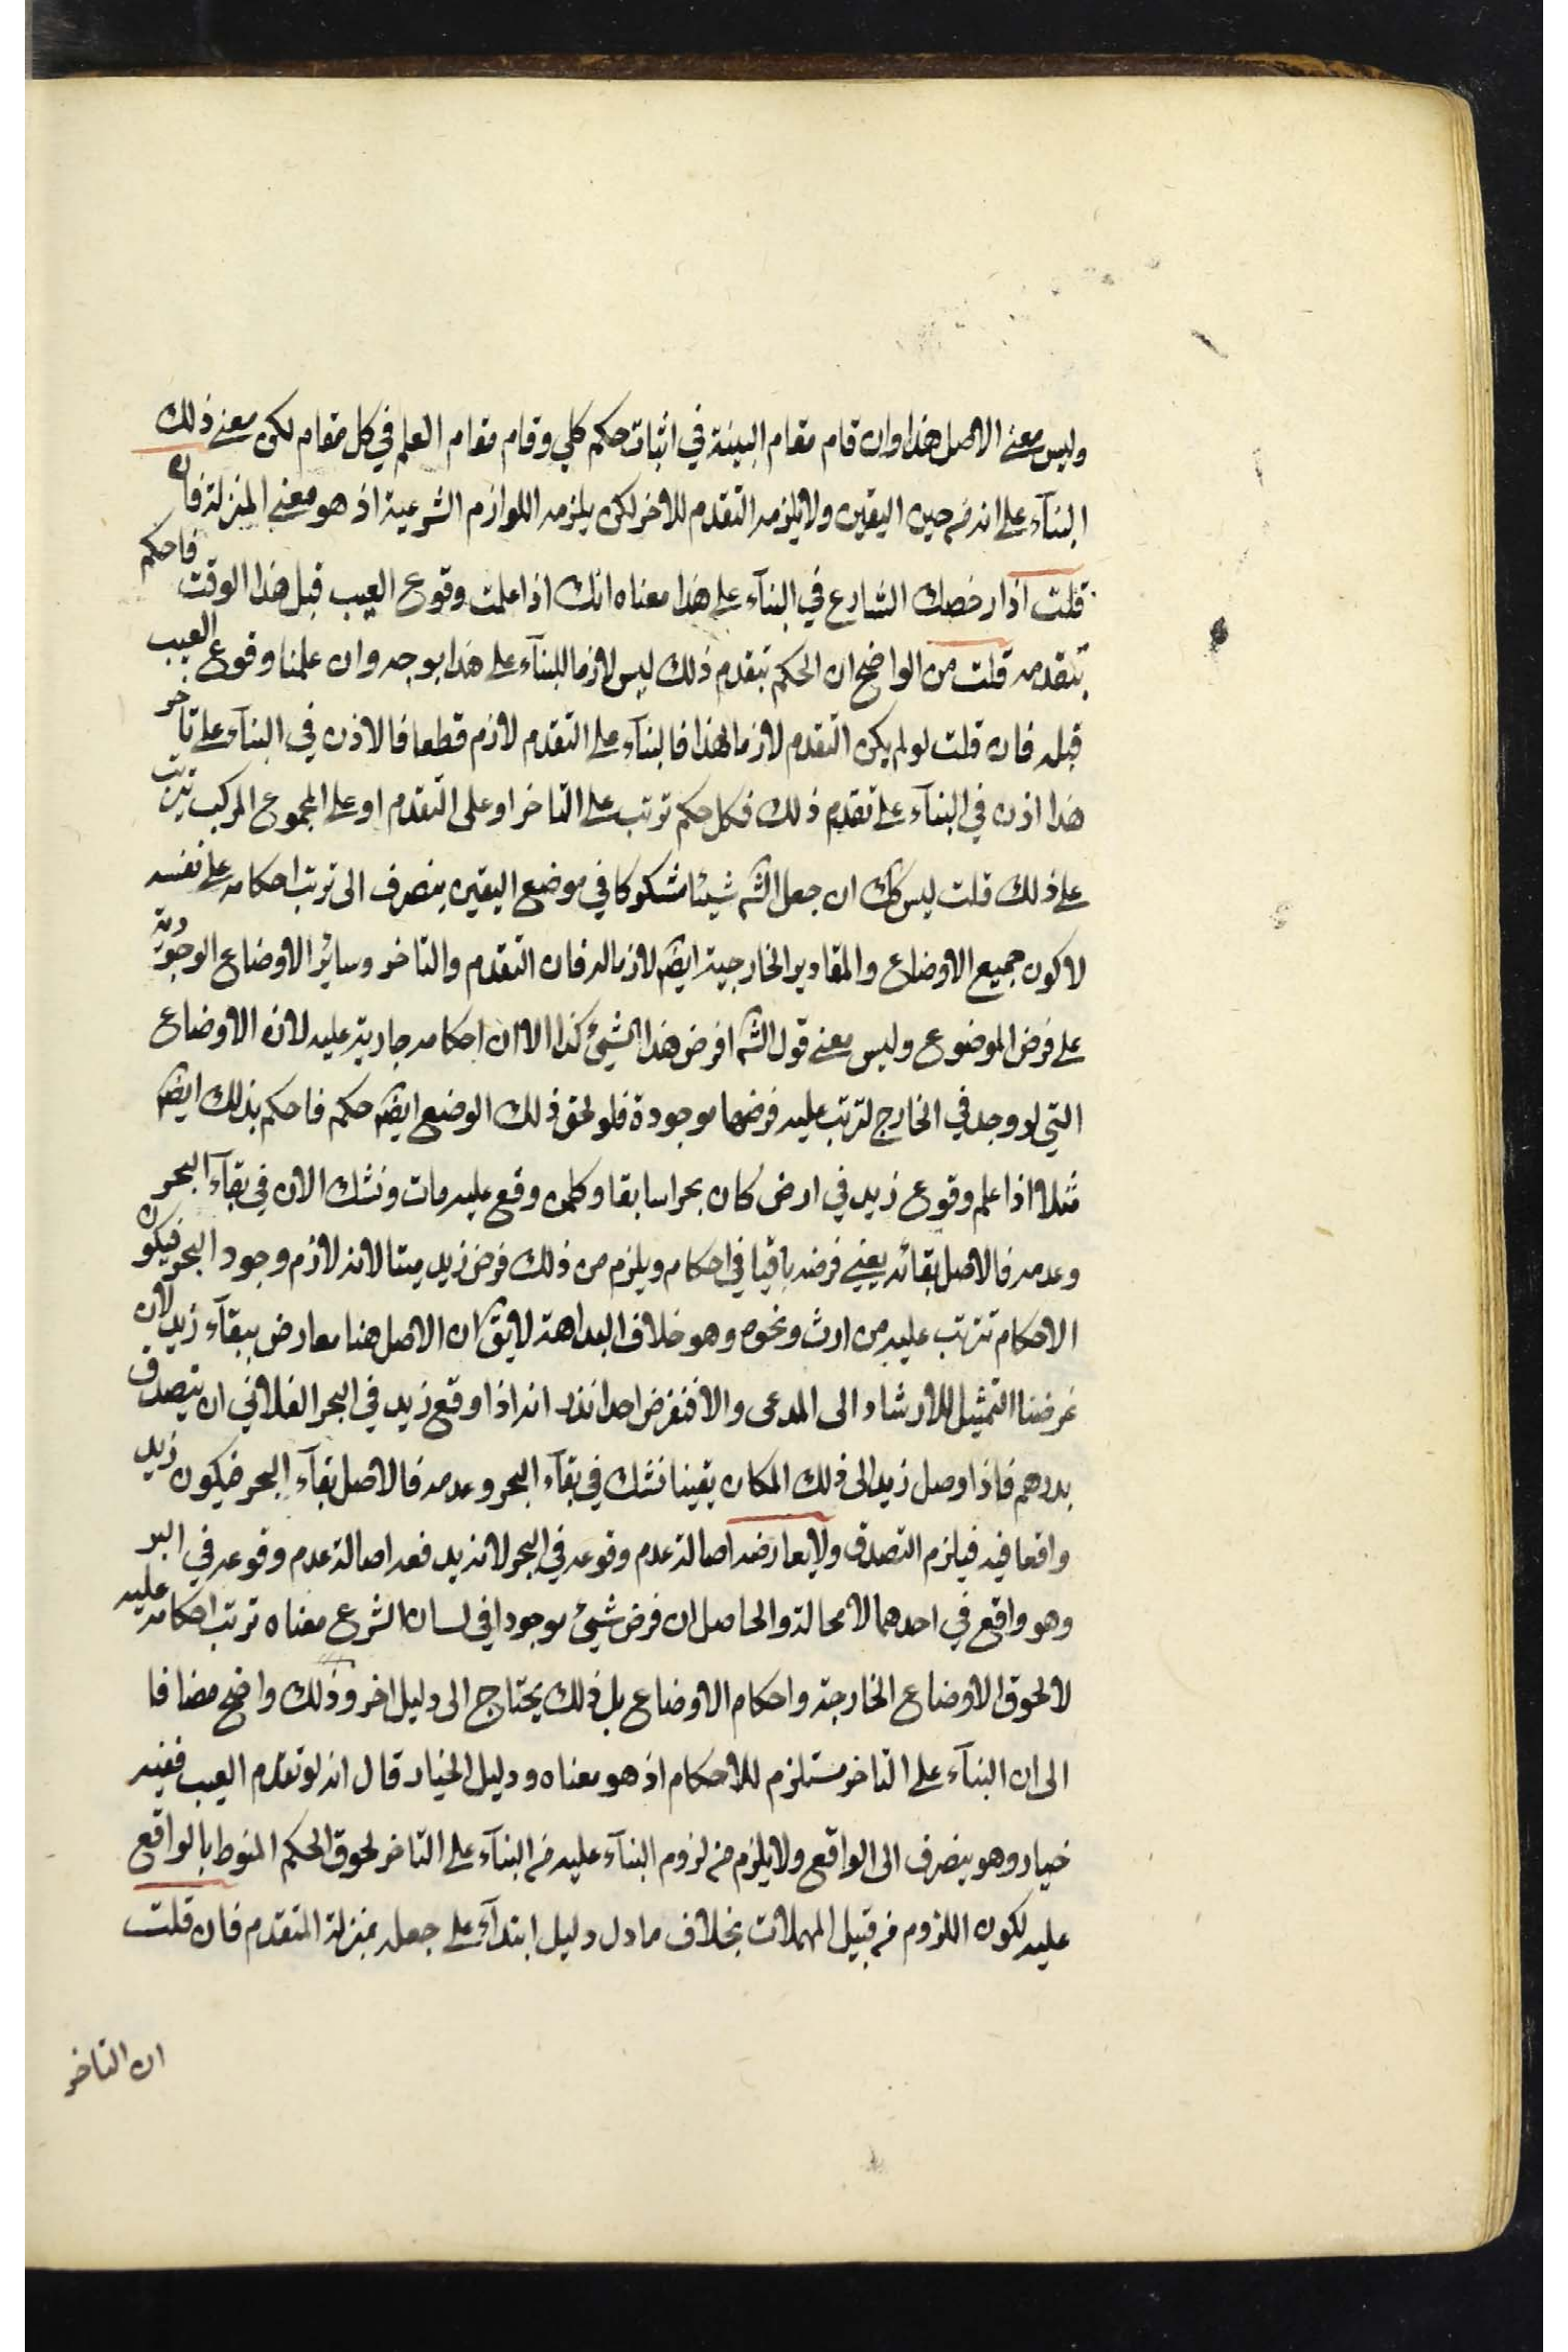 وليس معنى الاصل هذا وان قام مقام البينة في اثبات حكم كلي وقام مقام العلم في كل مقام لكن معنى ذلك
البنآء على انه من حين اليقين ولا يلزمه التقدم للاخر لكن يلزمه اللوازم الشرعية اذ هو معنى المنزلة فان
قلت اذا رخصك الشارع في البنآء على هذا معناه انك اذا علمت وقوع العيب قبل هذا الوقت فاحكم
بتقدمه قلت من الواضح ان الحكم بتقدم ذلك ليس لازما للبنآء على هذا بوجه وان علمنا وقوع العيب
قبله فان قلت لو لم يكن التقدم لازما لهذا فالبنآء على التقدم لازم قطعا فالاذن في البنآء على تاخر
هذا اذن في البنآء على تقدم ذلك فكل حكم ترتب على التاخر او على التقدم او على المجموع المركب يترتب
على ذلك قلت ليس كك ان جعل الشه شيئا مشكوكا في موضع اليقين ينصرف الى ترتب احكامه على نفسه
لا كون جميع الاوضاع والمقادير الخارجية ايضه لازما له فان التقدم والتاخر وسائر الاوضاع الوجودية
على فرض الموضوع وليس معنى قول الشه افرض هذا الشئ كذا الا ان احكامه جارية عليه لا ان الاوضاع
التي لو وجد في الخارج لترتب عليه فرضها موجودة فلو لحق ذلك الوضع ايضه حكم فاحكم بذلك ايضه
مثلا اذا علم وقوع زيد في ارض كان بحرا سابقا وكلمن وقع عليه مات ونشك الان في بقآء البحر
وعدمه فالاصل بقائه يعني فرضه باقيا في احكام ويلزم من ذلك فرض زيد ميتا لانه لازم وجود البحر فيكون
الاحكام تترتب عليه من ارث ونحوه وهو خلاف البداهة لا يق ان الاصل هنا معارض ببقآء زيد لان
غرضنا التمثيل للارشاد الى المدعى والا فنفرض احدا نذر انه اذا وقع زيد في البحر الفلاني ان يتصدق
بدرهم فاذا وصل زيد الى ذلك المكان يقينا نشك في بقآء البحر وعدمه فالاصل بقآء البحر فيكون زيد
واقعا فيه فيلزم التصدق ولا يعارضه اصالة عدم وقوعه في البحر لانه يدفعه اصالة عدم وقوعه في البر
وهو واقع في احدهما لا محالة والحاصل ان فرض شئ موجودا في لسان الشرع معناه ترتب احكامه عليه
لا لحوق الاوضاع الخارجة واحكام الاوضاع بل ذلك يحتاج الى دليل اخر وذلك واضح مضافا
الى ان البنآء على التاخر مستلزم للاحكام اذ هو معناه ودليل الخيار قال انه لو تقدم العيب ففيه
خيار وهو ينصرف الى الواقع ولا يلزم من لزوم البنآء عليه من البنآء على التاخر لحوق الحكم المنوط بالواقع
عليه لكون اللزوم من قبيل المهملات بخلاف ما دل دليل ابتدآء على جعله بمنزلة المتقدم فان قلت
ان التاخر